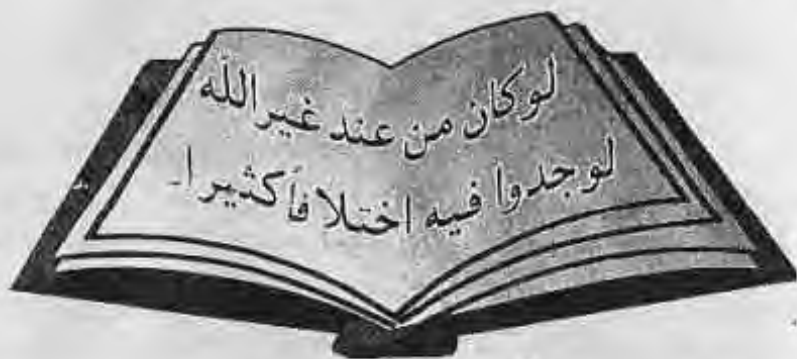 لو كان من عند غير الله
لوجدوا فيه اختلافاً كثيرا ـ